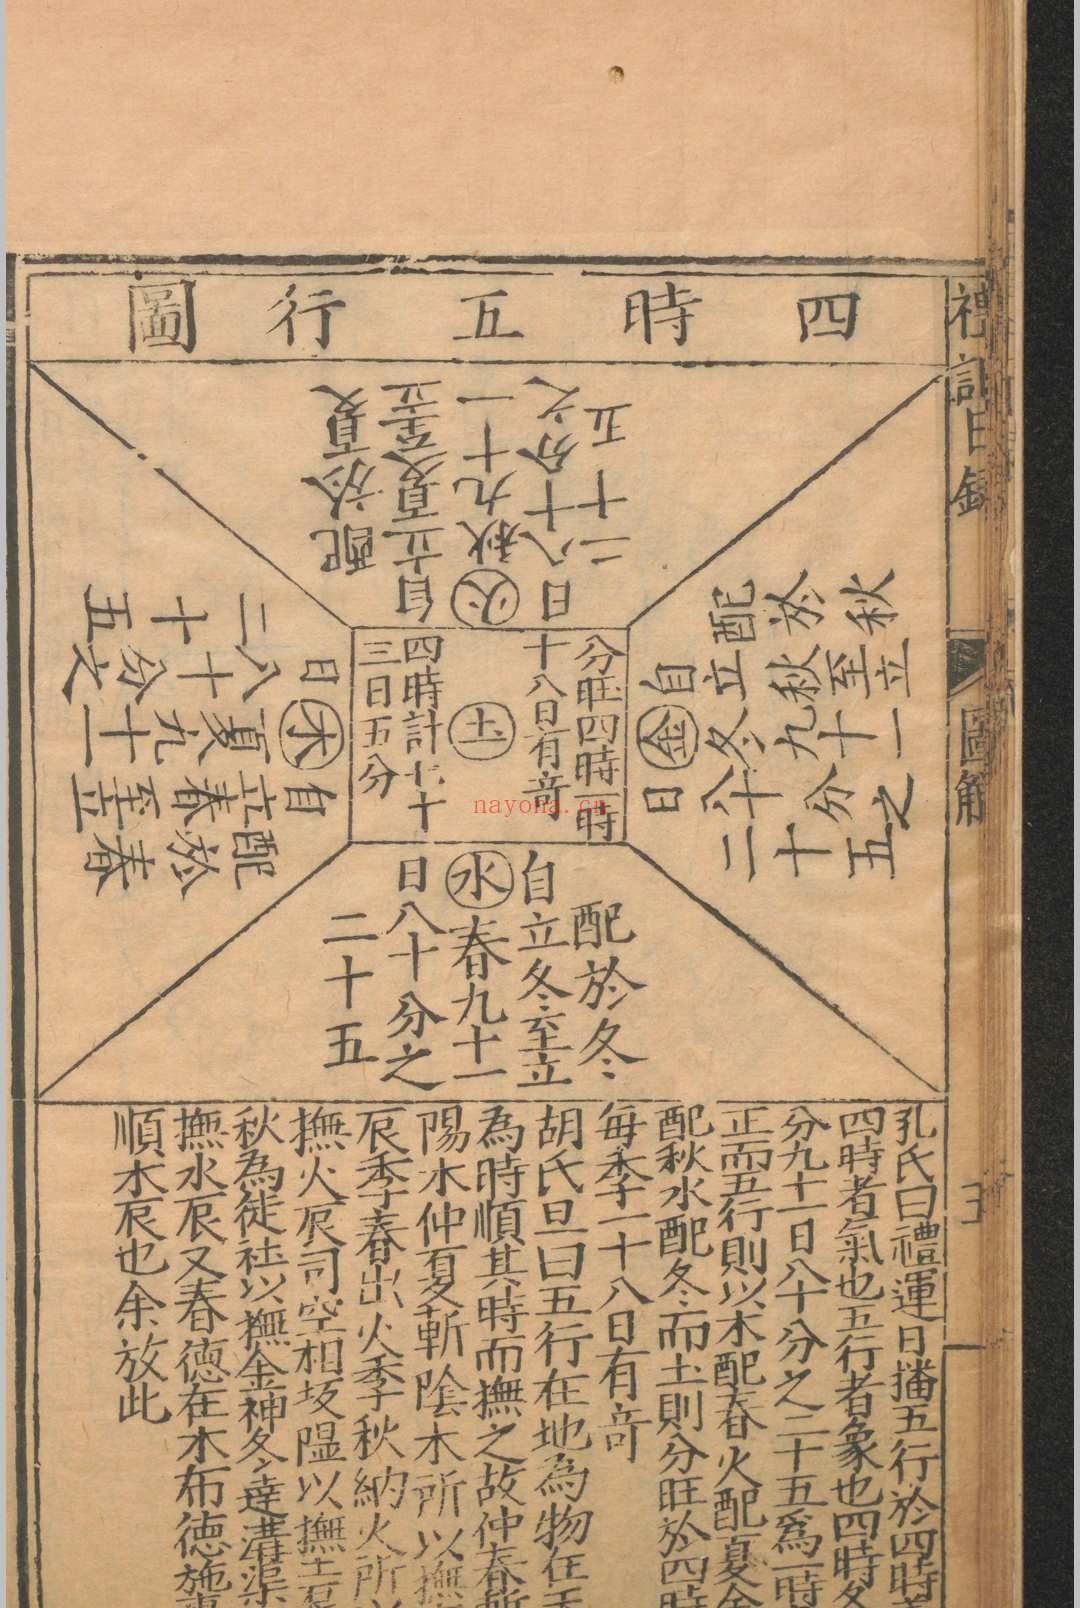 四時五行圖
配於夏
自立夏至立
秋九十一
日八十分之
二十五
火
配於秋
自立秋至立
冬九十一
日八十分之
二十五
金
分旺四時一時
十八日有奇
土
四時計七十
三日五分
配於春
自立春至立
夏九十一
日八十分之
二十五
木
配於冬
自立冬至立
春九十一
日八十分之
二十五
水
孔氏曰禮運曰播五行於四時
四時者氣也五行者象也四時各
分九十一日八十分之二十五爲一時
正而五行則以木配春火配夏金
配秋水配冬而土則分旺於四時
每季一十八日有奇
胡氏旦曰五行在地為物在天
為時順其時而撫之故仲春斬
陽木仲夏斬陰木所以撫
辰季春出火季秋納火所以
撫火辰司空相坂隰以撫土辰
秋為徒杠以撫金神冬達溝渠
撫水辰又春德在木布德施惠
順木辰也余放此
禮記目錄
圖解
nayona.cn